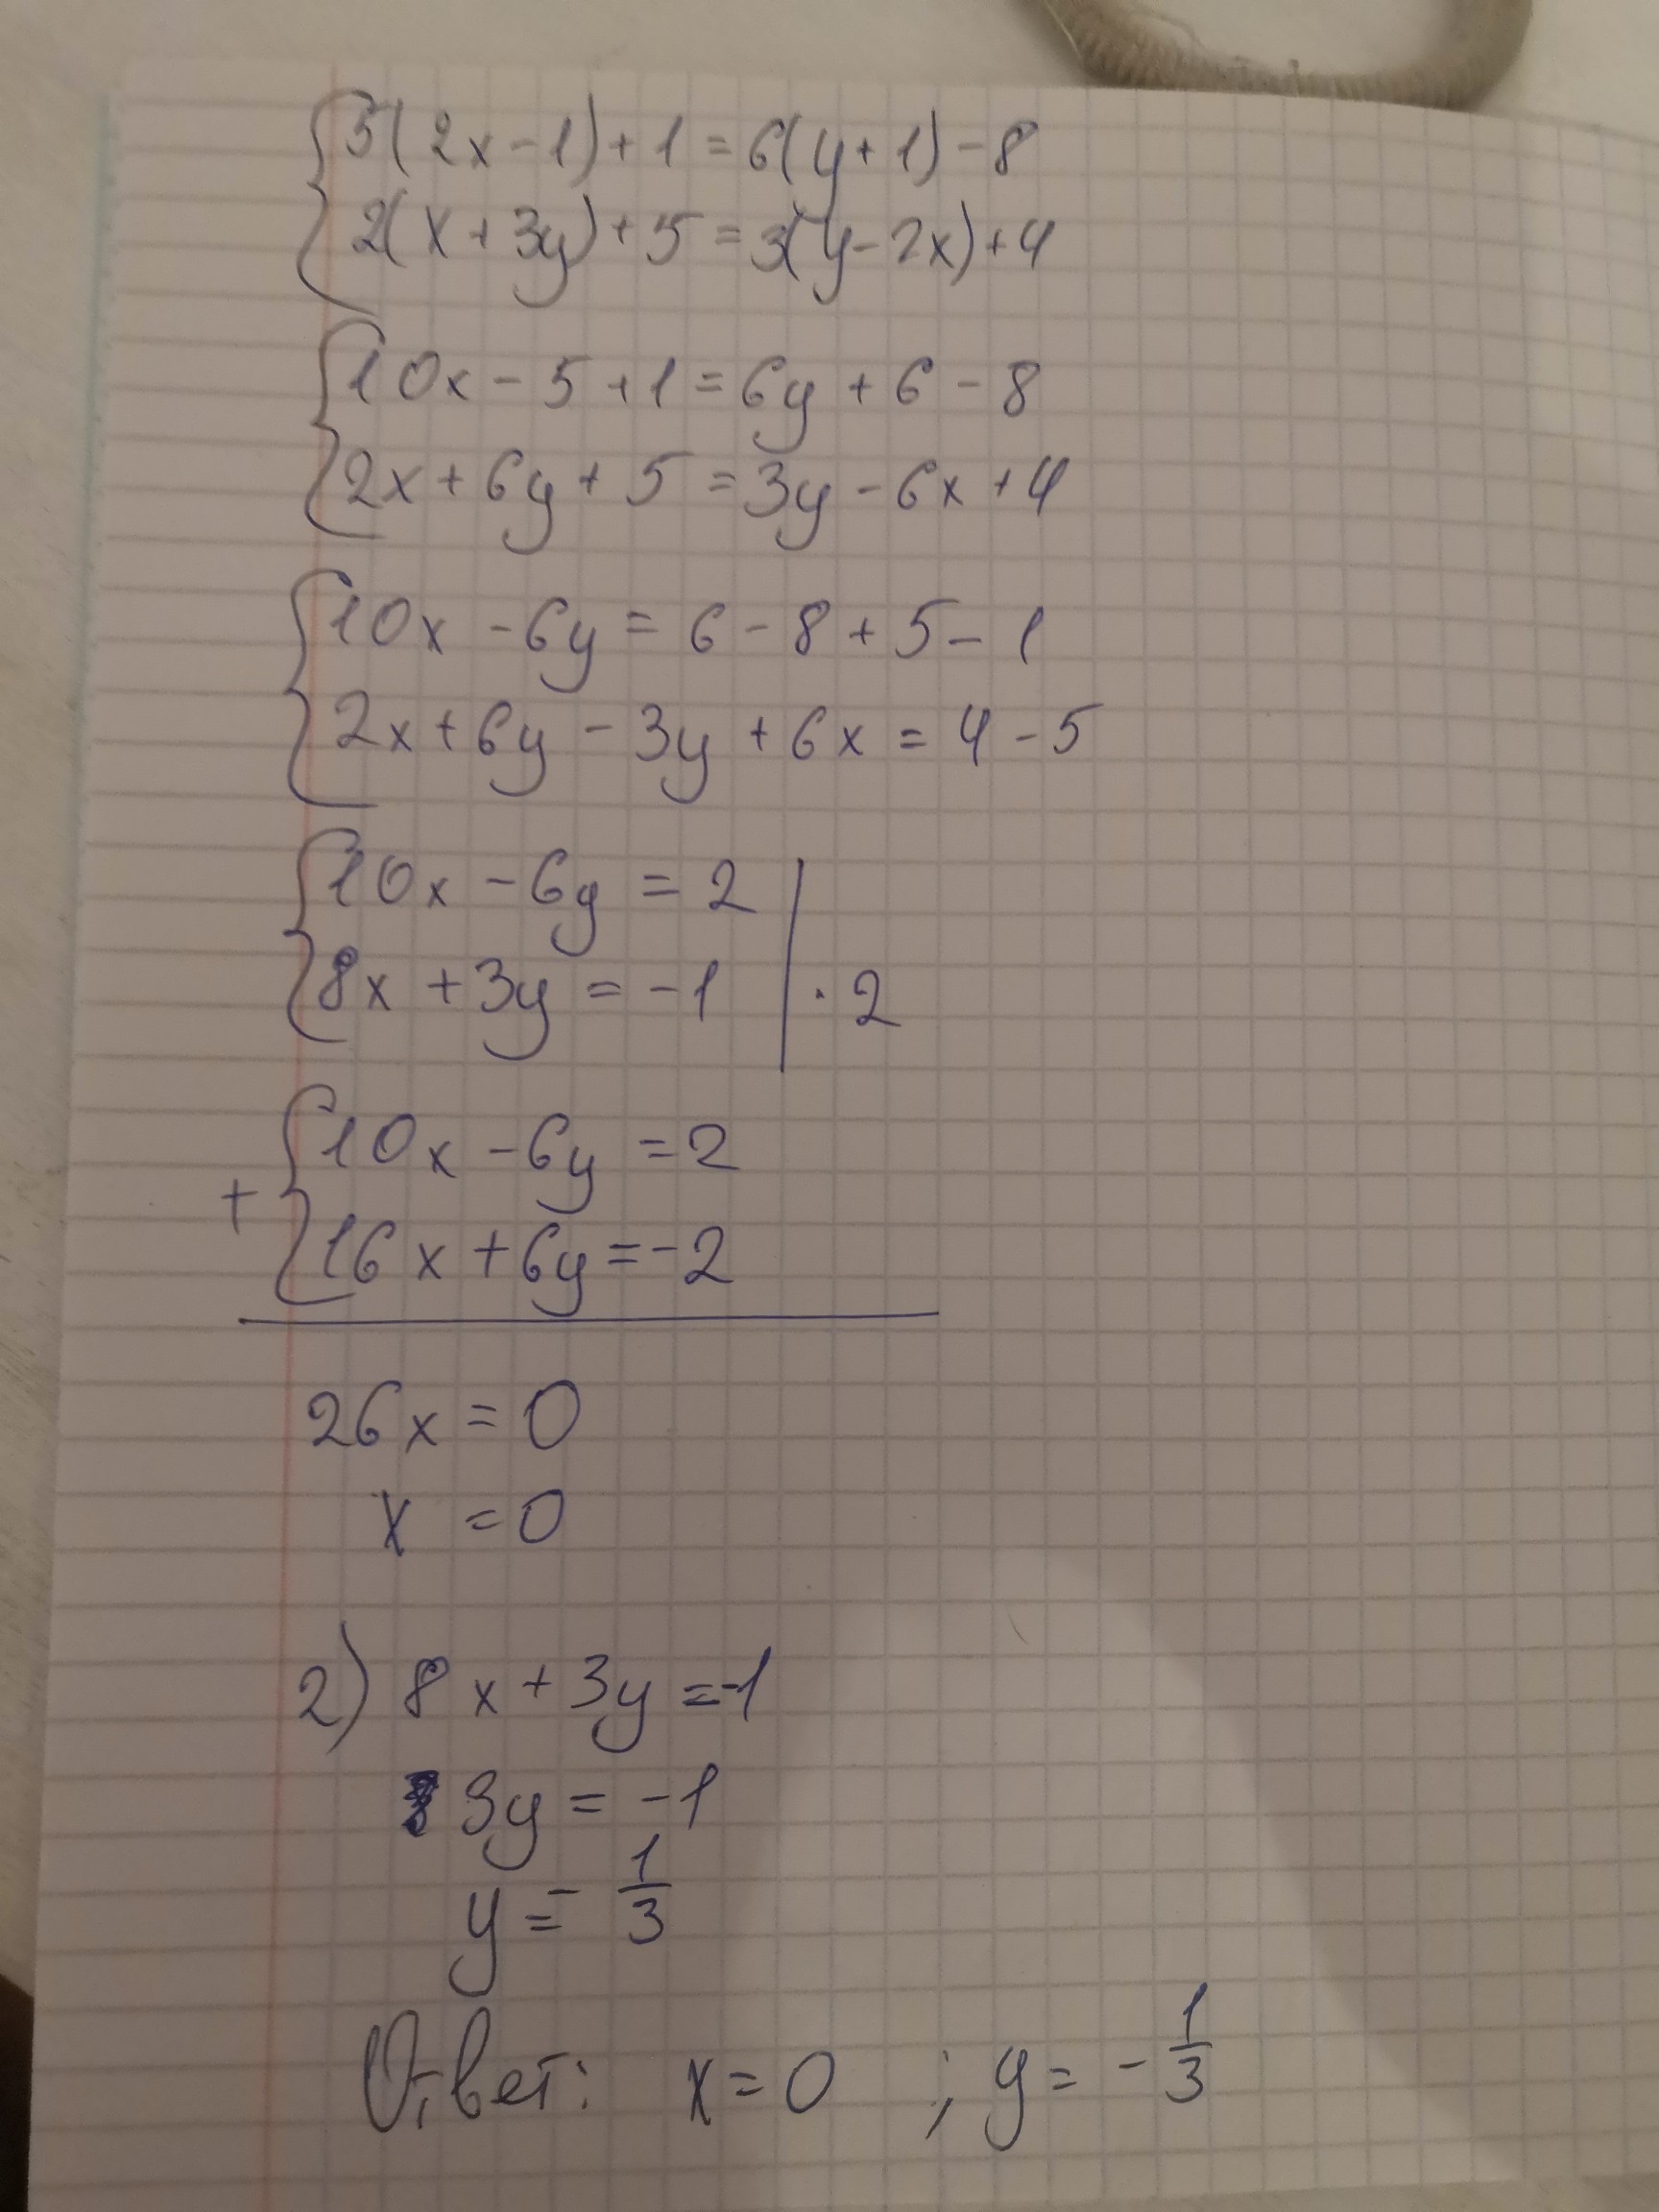 5(2x-1)+1=6(y+1)-8
2(x+3y)+5=3(y-2x)+4
10x-5+1=6y+6-8
2x+6y+5=3y-6x+4
10x-6y=6-8+5-1
2x+6y-3y+6x=4-5
10x-6y=2
8x+3y=-1 | ·2
10x-6y=2
+
16x+6y=-2
26x=0
x=0
2) 8x+3y=-1
3y=-1
y=-1/3
Ответ: x=0 ; y=-1/3